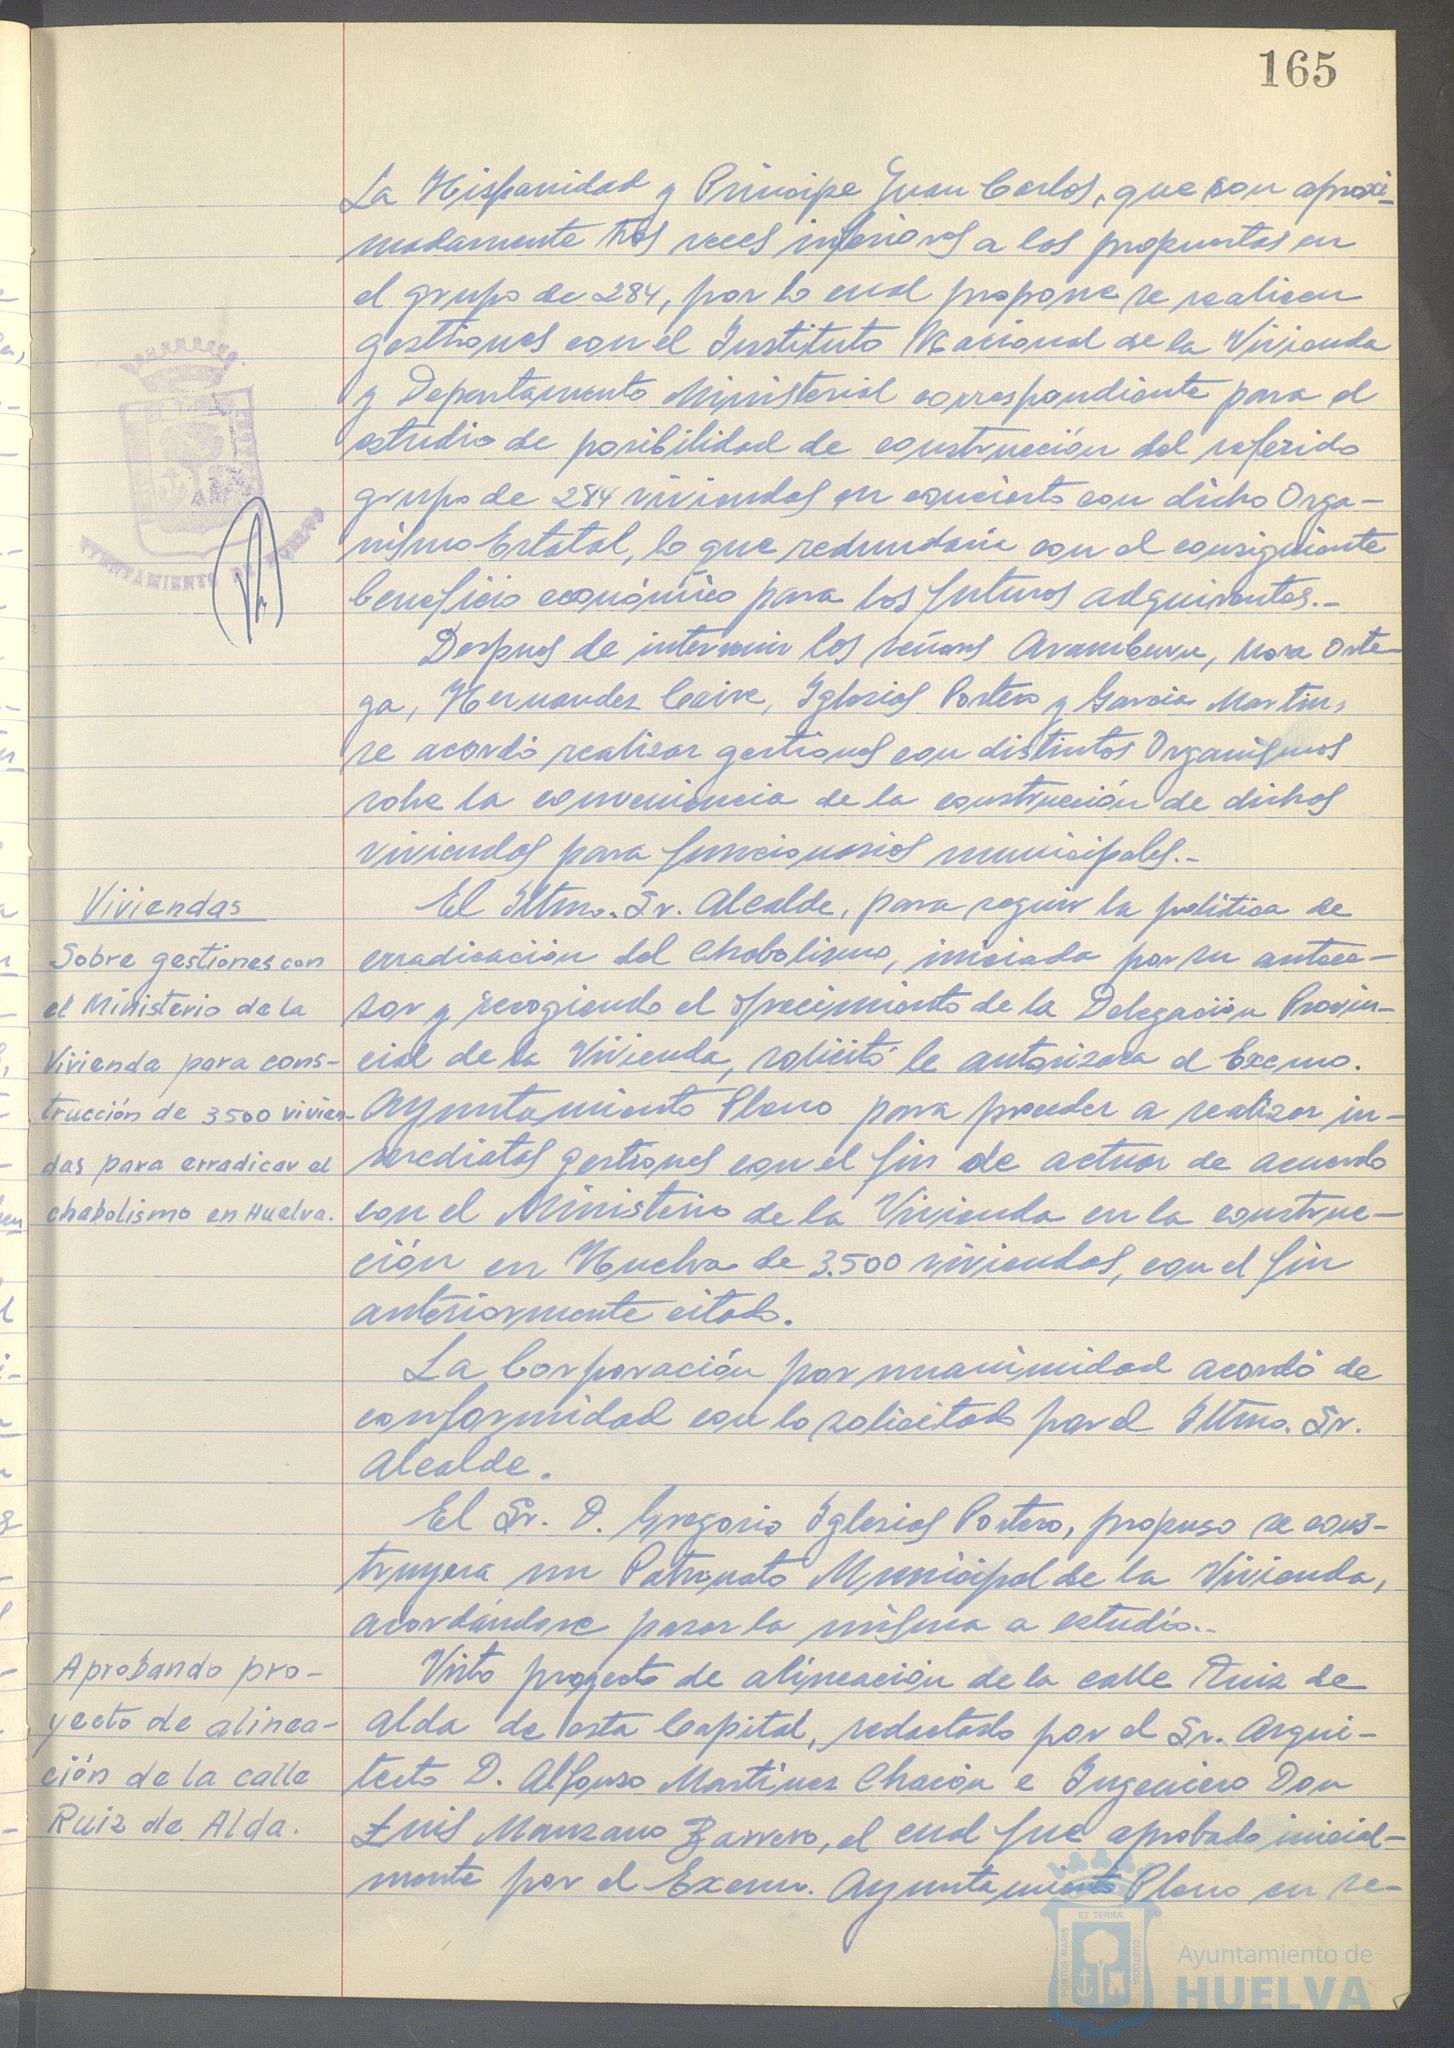 165
La Hispanidad y Principe Juan Carlos, que son aproxi-
madamente tres veces inferiores a los propuestos en
el grupo de 284, por lo cual propone se realicen
gestiones con el Instituto Nacional de la Vivienda
y Departamento Ministerial correspondiente para el
estudio de posibilidad de construcción del referido
grupo de 284 viviendas en concierto con dicho Orga-
nismo Estatal, lo que redundaria con el consiguiente
beneficio económico para los futuros adquirentes.-
Despues de intervenir los señores Aramburu, Mora Orte-
ga, Hernandez Caire, Iglesias Portero y Garcia Martin,
se acordó realizar gestiones con distintos Organismos
sobre la conveniencia de la construcción de dichas
viviendas para funcionarios municipales.-
Viviendas
Sobre gestiones con
el Ministerio de la
Vivienda para cons-
trucción de 3500 vivien-
das para erradicar el
chabolismo en Huelva.
El Iltmo. Sr. Alcalde, para seguir la política de
erradicación del Chabolismo, iniciada por su antece-
sor y recogiendo el ofrecimiento de la Delegación Provin-
cial de la Vivienda, solicitó le autorizara el Excmo.
Ayuntamiento Pleno para proceder a realizar in-
mediatas gestiones con el fin de actuar de acuerdo
con el Ministerio de la Vivienda en la construc-
ción en Huelva de 3.500 viviendas, con el fin
anteriormente citado.
La Corporación por unanimidad acordó de
conformidad con lo solicitado por el Iltmo. Sr.
Alcalde.
El Sr. D. Gregorio Iglesias Portero, propuso se cons-
truyera un Patronato Municipal de la Vivienda,
acordándose pasar la misma a estudio.-
Aprobando pro-
yecto de alinea-
ción de la calle
Ruiz de Alda.
Visto proyecto de alineación de la calle Ruiz de
Alda de esta Capital, redactado por el Sr. Arqui-
tecto D. Alfonso Martinez Chacón e Ingeniero Don
Luis Manzano Barrero, el cual fue aprobado inicial-
mente por el Excmo. Ayuntamiento Pleno en se-
AYUNTAMIENTO DE HUELVA
PORTUS MARIS
ET TERRÆ
CUSTODIA
Ayuntamiento de
HUELVA